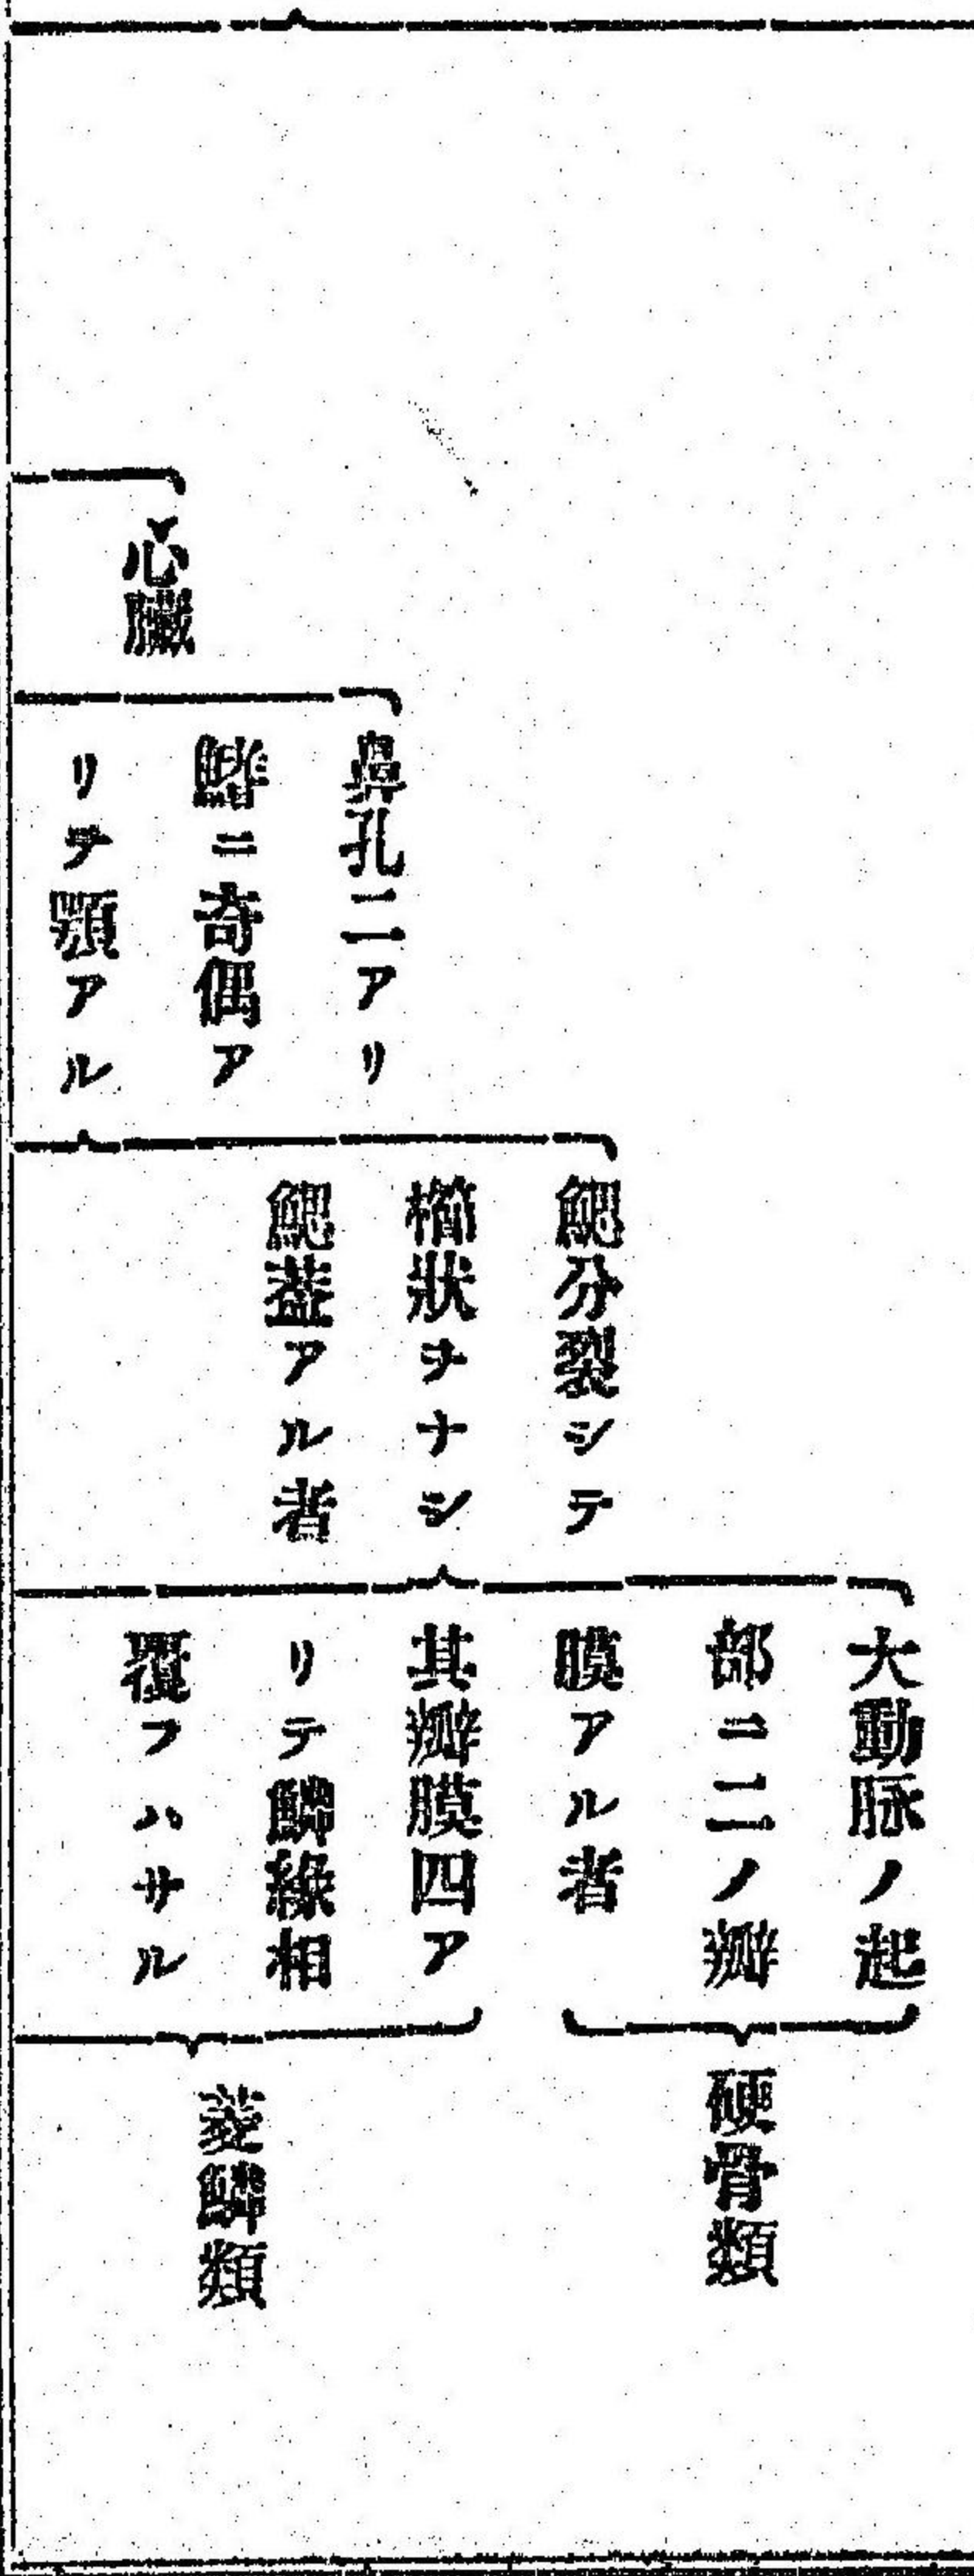 心臟
鼻孔二アリ
鰭ニ奇偶ア
リテ顎アル
鰓分裂シテ
櫛狀ヲナシ
鰓蓋アル者
大動脉ノ起
部ニ二ノ瓣
膜アル者
硬骨類
其瓣膜四ア
リテ鱗緣相
覆フハサル
菱鱗類